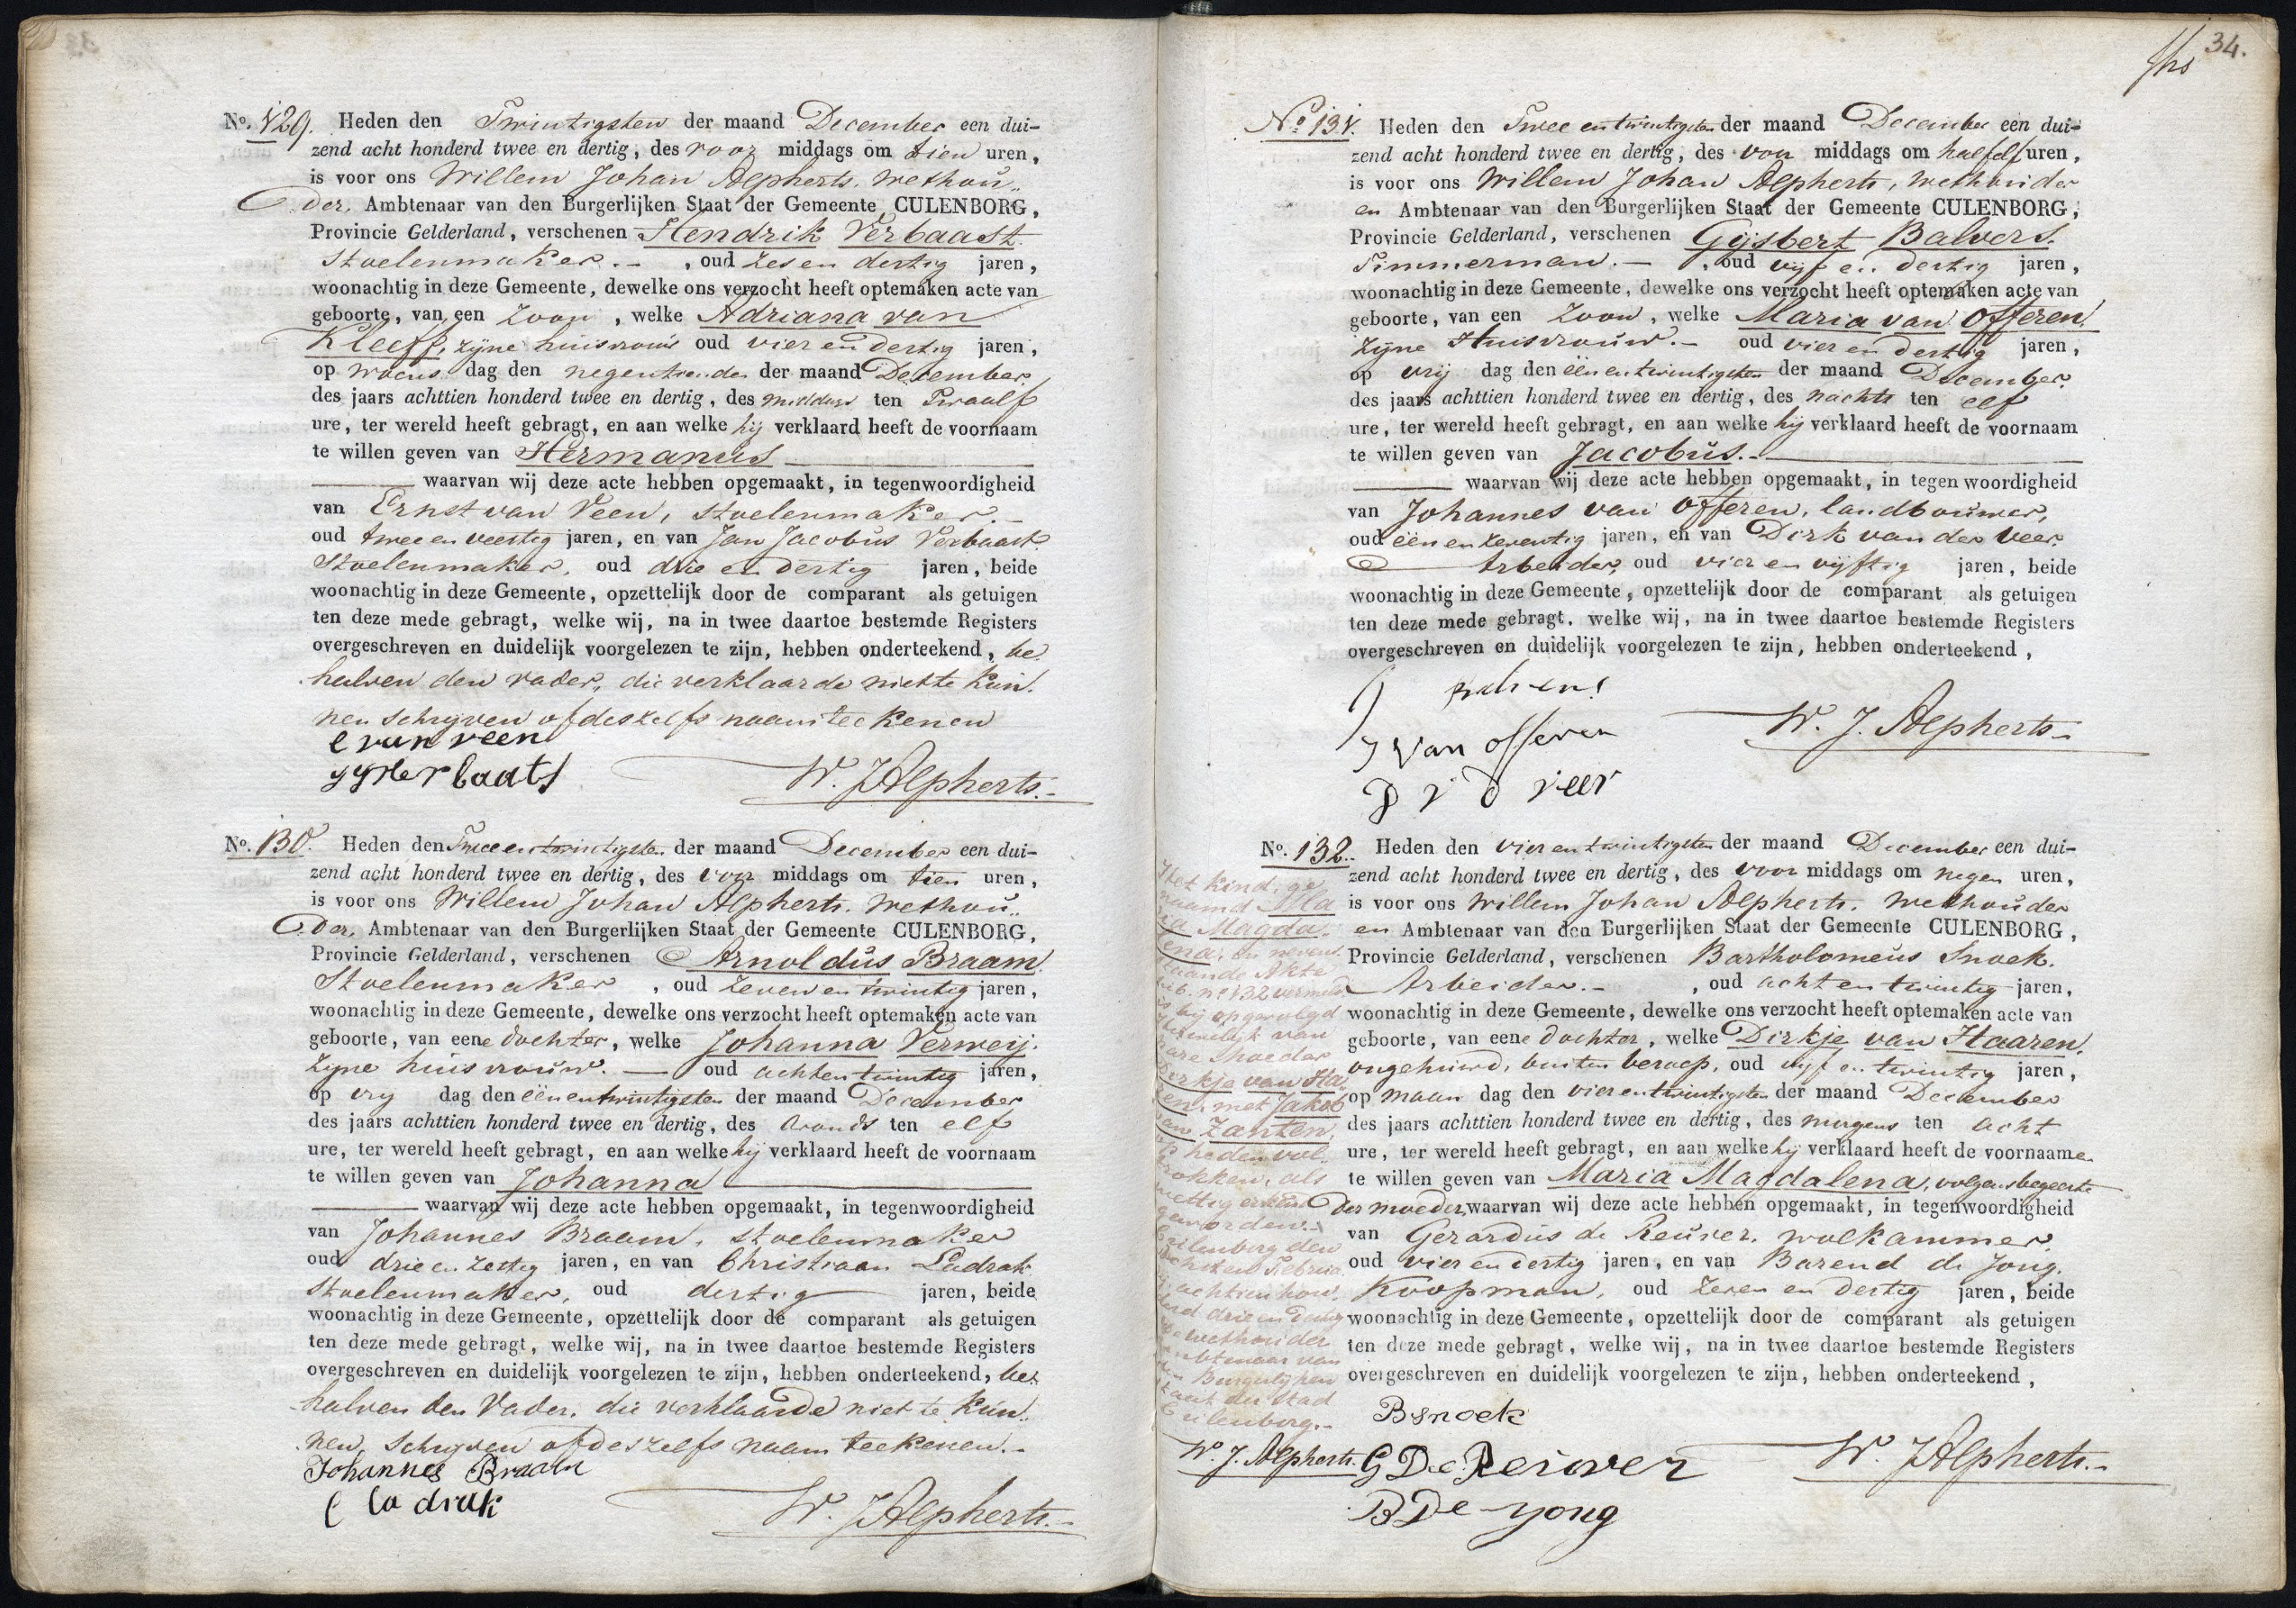 No. 129. Heden den Twintigsten der maand December een dui-
zend acht honderd twee en dertig, des voor middags om tien uren,
is voor ons Willem Johan Alpherts. Wethou„
der, Ambtenaar van den Burgerlijken Staat der Gemeente CULENBORG,
Provincie Gelderland, verschenen Hendrik Verbaast.
Stoelenmaker. - , oud zes en dertig jaren,
woonachtig in deze Gemeente, dewelke ons verzocht heeft optemaken acte van
geboorte, van een Zoon, welke Adriana van
Kleeff, zijne huisvrouw oud vier en dertig jaren,
op woens dag den negentienden der maand December
des jaars achttien honderd twee en dertig, des middags ten Twaalf
ure, ter wereld heeft gebragt, en aan welke hij verklaard heeft de voornaam
te willen geven van Hermanus
waarvan wij deze acte hebben opgemaakt, in tegenwoordigheid
van Ernst van Veen, stoelenmaker. -
oud twee en veertig jaren, en van Jan Jacobus Verbaast.
Stoelenmaker, oud drie en dertig jaren, beide
woonachtig in deze Gemeente, opzettelijk door de comparant als getuigen
ten deze mede gebragt, welke wij, na in twee daartoe bestemde Registers
overgeschreven en duidelijk voorgelezen te zijn, hebben onderteekend, be„
halven den vader, die verklaarde niet te kun„
nen schrijven of deszelfs naam teekenen
E van veen
W. J. Alpherts.-
No. 130. Heden den Twee en twintigsten der maand December een dui-
zend acht honderd twee en dertig, des voor middags om tien uren,
is voor ons Willem Johan Alpherts. Wethou„
der, Ambtenaar van den Burgerlijken Staat der Gemeente CULENBORG,
Provincie Gelderland, verschenen Arnoldus Braam.
Stoelenmaker, oud Zeven en twintig jaren,
woonachtig in deze Gemeente, dewelke ons verzocht heeft optemaken acte van
geboorte, van eene dochter, welke Johanna Verweij.
zijne huisvrouw. - oud acht en twintig jaren,
op vrij dag den een en twintigsten der maand December
des jaars achttien honderd twee en dertig, des avonds ten elf
ure, ter wereld heeft gebragt, en aan welke hij verklaard heeft de voornaam
te willen geven van Johanna
waarvan wij deze acte hebben opgemaakt, in tegenwoordigheid
van Johannes Braam, stoelenmaker
oud drie en zestig jaren, en van Christiaan Ladrak
Stoelenmaker, oud dertig jaren, beide
woonachtig in deze Gemeente, opzettelijk door de comparant als getuigen
ten deze mede gebragt, welke wij, na in twee daartoe bestemde Registers
overgeschreven en duidelijk voorgelezen te zijn, hebben onderteekend, be„
halven den Vader, die verklaarde niet te kun„
nen, schrijven of deszelfs naam teekenen.-
Johannes Braam
C la drak
W. J. Alpherts.-
34.
No. 131. Heden den Twee en twintigsten der maand December een dui-
zend acht honderd twee en dertig, des voor middags om half elf uren,
is voor ons Willem Johan Alpherts, Wethouder
en Ambtenaar van den Burgerlijken Staat der Gemeente CULENBORG,
Provincie Gelderland, verschenen Gijsbert Balvers.
Timmerman. - , oud vijf en dertig jaren,
woonachtig in deze Gemeente, dewelke ons verzocht heeft optemaken acte van
geboorte, van een Zoon, welke Maria van Offeren.
zijne Huisvrouw. - oud vier en dertig jaren,
op vrij dag den een en twintigsten der maand December
des jaars achttien honderd twee en dertig, des nachts ten elf
ure, ter wereld heeft gebragt, en aan welke hij verklaard heeft de voornaam
te willen geven van Jacobus. -
waarvan wij deze acte hebben opgemaakt, in tegenwoordigheid
van Johannes van Offeren, landbouwer,
oud een en zeventig jaren, en van Dirk van der Veer.
Arbeider, oud vier en vijftig jaren, beide
woonachtig in deze Gemeente, opzettelijk door de comparant als getuigen
ten deze mede gebragt, welke wij, na in twee daartoe bestemde Registers
overgeschreven en duidelijk voorgelezen te zijn, hebben onderteekend,
J van offeren
D v d veer
W. J. Alpherts-
No. 132. Heden den vier en twintigsten der maand December een dui-
zend acht honderd twee en dertig, des voor middags om negen uren,
is voor ons Willem Johan Alpherts. Wethouder
en Ambtenaar van den Burgerlijken Staat der Gemeente CULENBORG,
Provincie Gelderland, verschenen Bartholomeus Snoek.
Arbeider. - , oud acht en twintig jaren,
woonachtig in deze Gemeente, dewelke ons verzocht heeft optemaken acte van
geboorte, van eene dochter, welke Dirkje van Haaren,
ongehuwd, buiten beroep, oud vijf en twintig jaren,
op maan dag den vier en twintigsten der maand December
des jaars achttien honderd twee en dertig, des morgens ten acht
ure, ter wereld heeft gebragt, en aan welke hij verklaard heeft de voornaamen
te willen geven van Maria Magdalena, volgens begeerte
der moeder, waarvan wij deze acte hebben opgemaakt, in tegenwoordigheid
van Gerardus de Reuver. wolkammer,
oud vier en dertig jaren, en van Barend de Jong.
Koopman, oud Zeven en dertig jaren, beide
woonachtig in deze Gemeente, opzettelijk door de comparant als getuigen
ten deze mede gebragt, welke wij, na in twee daartoe bestemde Registers
overgeschreven en duidelijk voorgelezen te zijn, hebben onderteekend,
B snoek
G De Reuver
B De yong
W. J. Alpherts.-
Het kind, ge„
naamd Ma
ria Magda„
lena, in neven„
staande Akte
sub. no 132 vermeld
is bij opgevolgd
Huwelijk van
hare Moeder
Dirkje van Ha„
ren, met Jakob
van Zanten,
heden vol„
trokken, als
wettig erkend
geworden. -
Cuilenborg den
Februa„
achttien hon„
derd drie en dertig
De Wethouder
Ambtenaar van
den Burgerlijken
Staat der Stad
Cuilenborg.-
W. J. Alpherts.